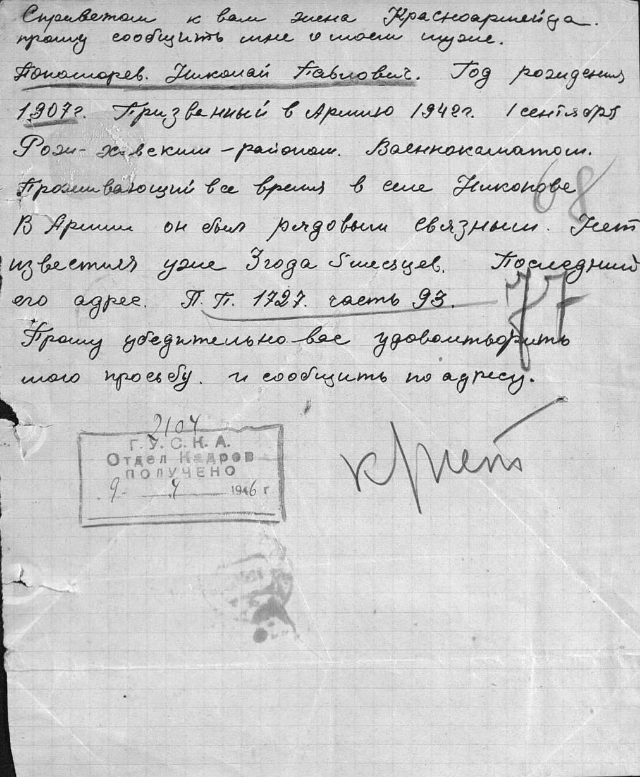 Сприветом к вам жена Красноармейца.
прошу сообщить мне о моем муже.
Пономорев. Николай Павлович. Год рождения
1907г. Призванный в Армию 1942г. 1 сентября
районом. Военнокаматом.
Проживающий все время в селе Никонове
68
В Армии он был рядовым связным. Нет
известия уже 3 года 5 месяцев. Последний
его адрес. П.П. 1727. часть 93.
77
Прошу убедительно вас удовомтворить
мою просьбу. и сообщить по адресу.
2104
Г.У.С.К.А.
Отдел Кадров
ПОЛУЧЕНО
9 - 4 1946 г
нет